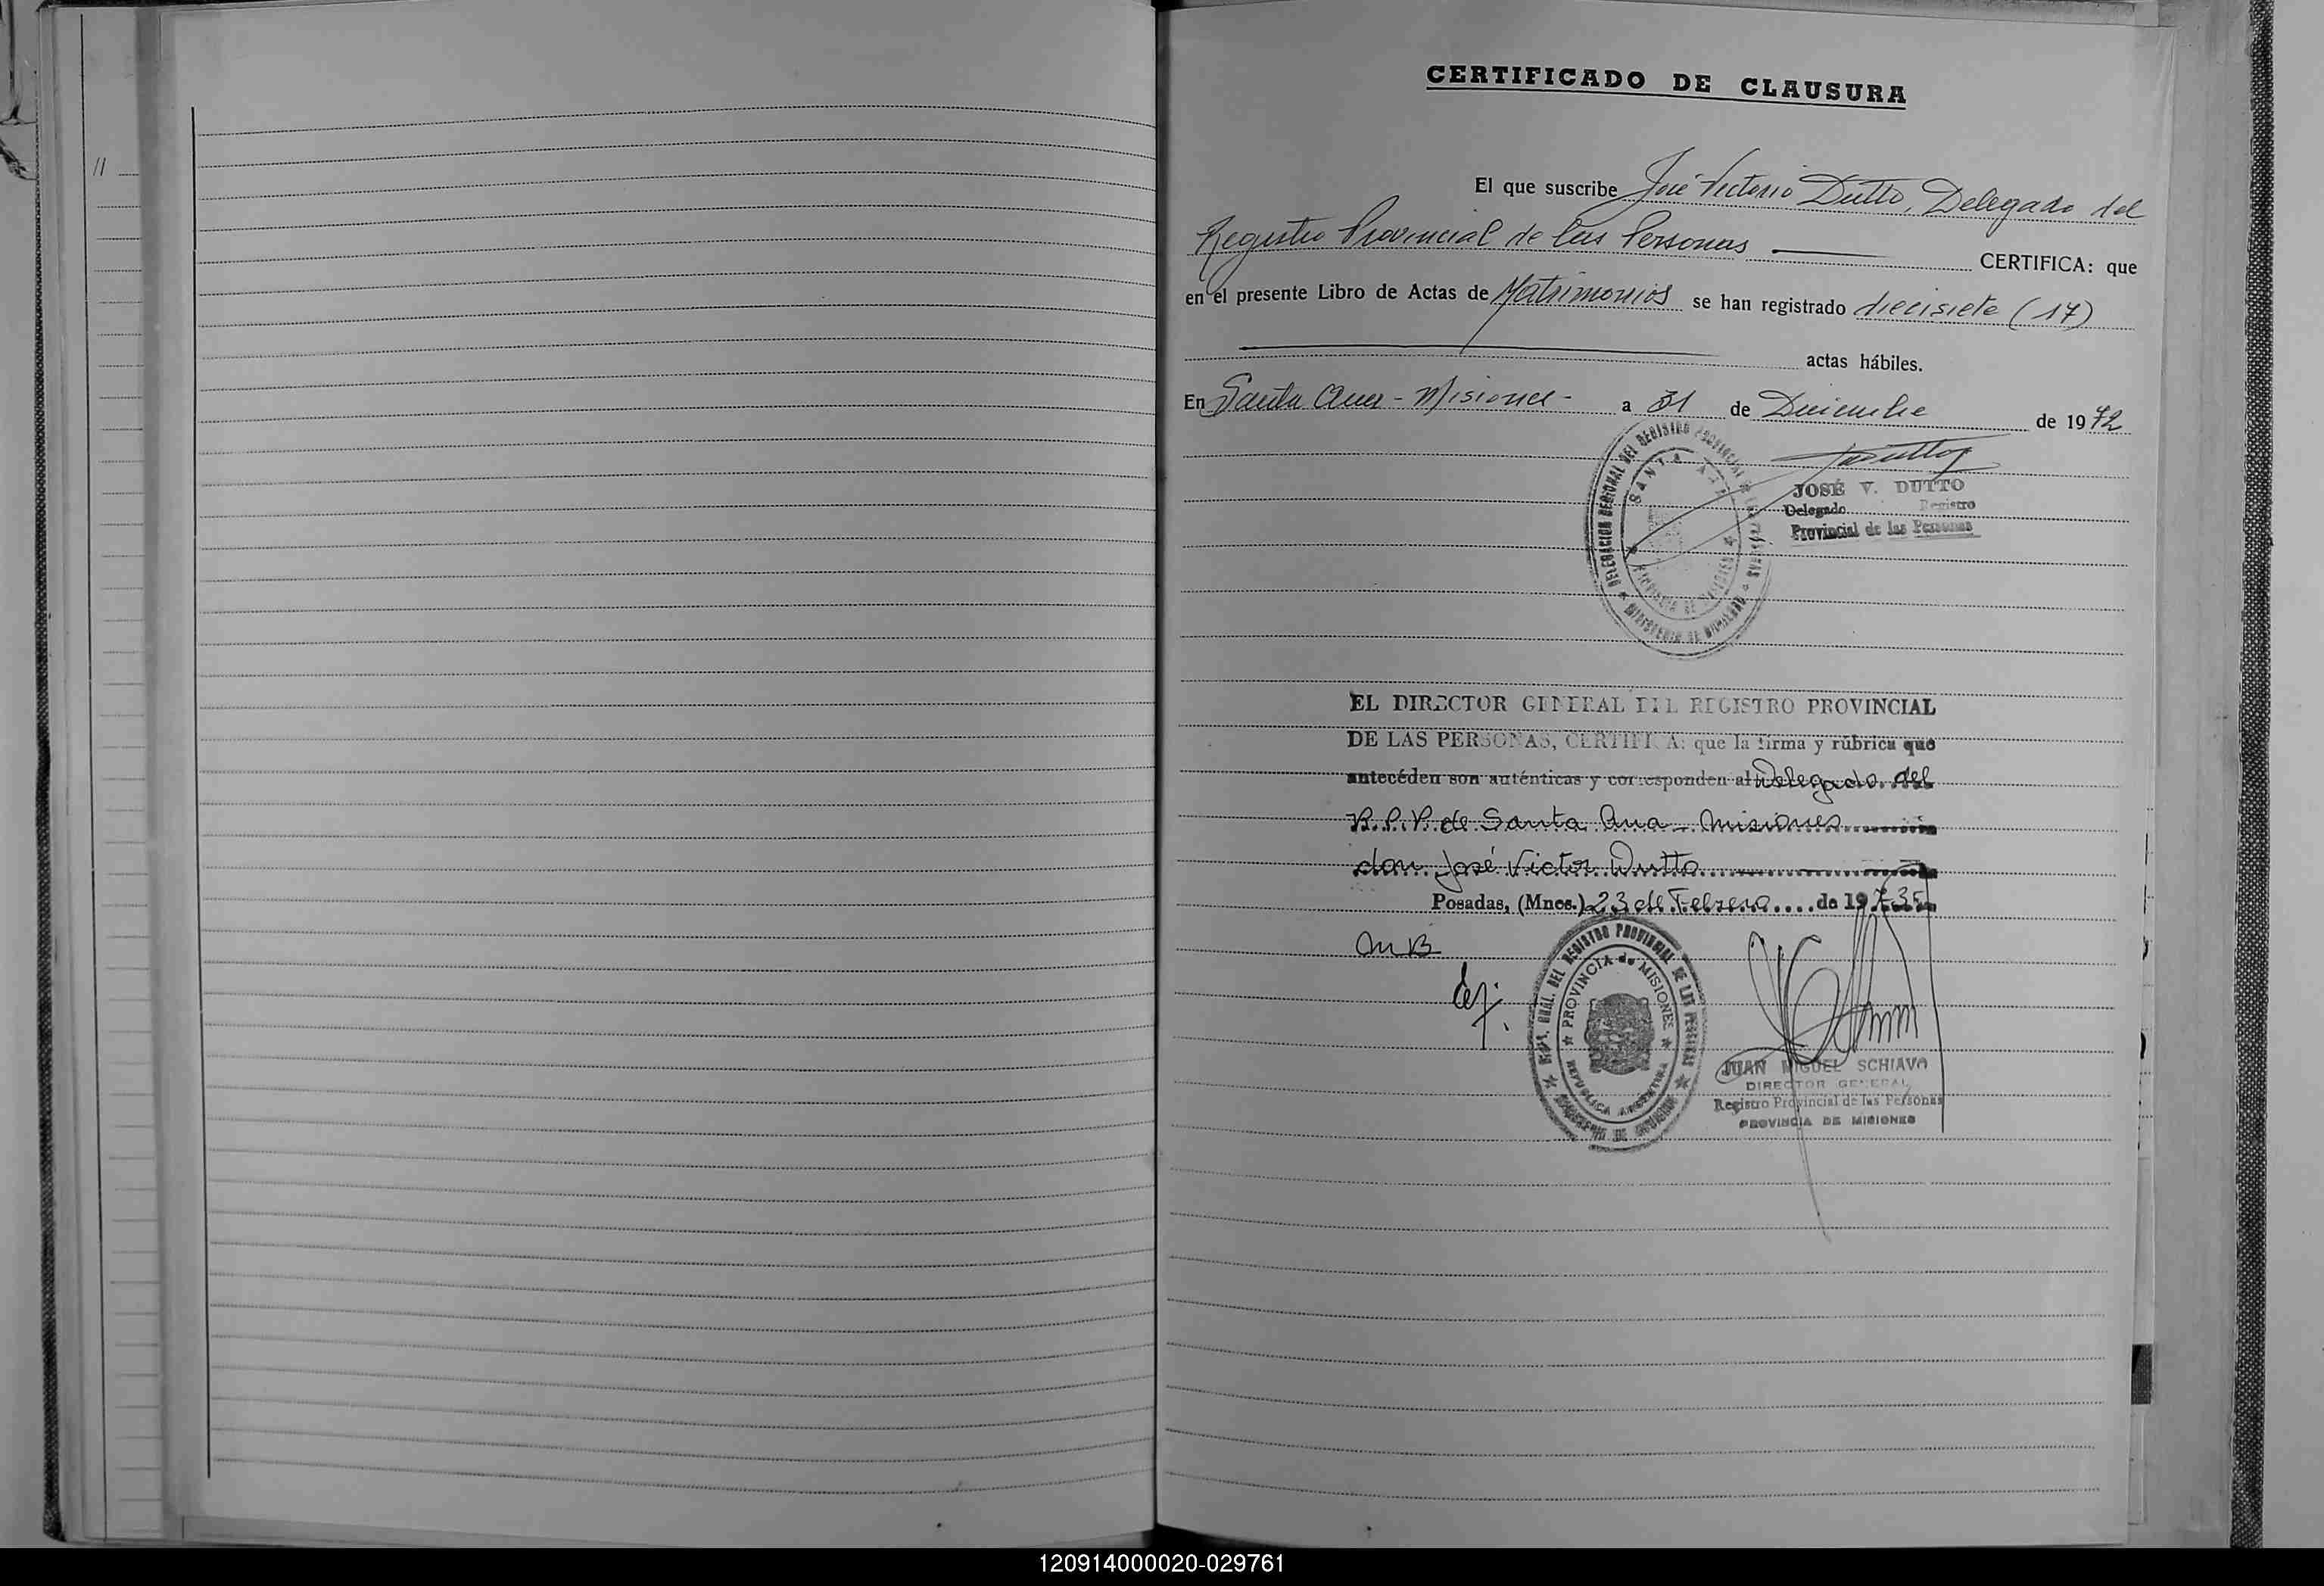 11
CERTIFICADO DE CLAUSURA
El que suscribe José Victorio Dutto, Delegado del
Registro Provincial de las Personas CERTIFICA: que
en el presente Libro de Actas de Matrimonios se han registrado diecisiete (17)
actas hábiles.
En Santa Ana - Misiones - a 31 de Diciembre de 1972
DELEGACION REGIONAL DEL REGISTRO PROVINCIAL DE LAS PERSONAS
SANTA ANA
PROVINCIA DE MISIONES
MINISTERIO DE GOBIERNO
JOSÉ V. DUTTO
Delegado Registro
Provincial de las Personas
EL DIRECTOR GENERAL DEL REGISTRO PROVINCIAL
DE LAS PERSONAS, CERTIFICA: que la firma y rúbrica que
antecéden son auténticas y corresponden al Delegado del
R.P.P. de Santa Ana - Misiones
don José Victor Dutto
Posadas, (Mnes.) 23 de Febrero de 1973
MB
GRAL. DEL REGISTRO PROVINCIAL DE LAS PERSONAS
PROVINCIA de MISIONES
REPUBLICA ARGENTINA
JUAN MIGUEL SCHIAVO
DIRECTOR GENERAL
Registro Provincial de las Personas
PROVINCIA DE MISIONES
120914000020-029761